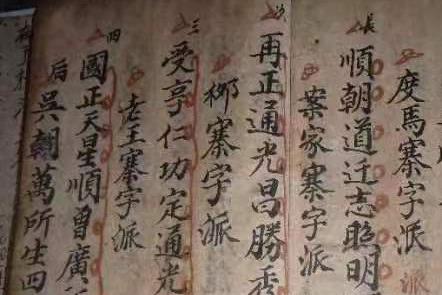 度馬寨字派
長
順朝道迁志照明
案家寨字派
次
再正通光昌勝秀
柳寨字派
三
受享仁功定通光
老王寨字派
四
國正天星順曾廣
后
吳朝萬所生四